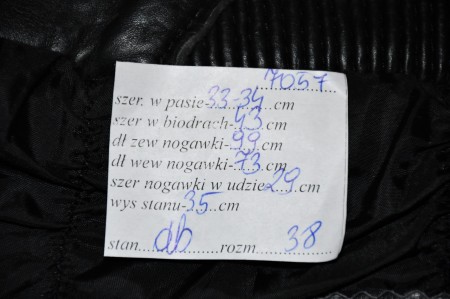 7057
szer. w pasie-33-34 cm
szer w biodrach-43 cm
dł zew nogawki-99 cm
dł wew nogawki-73 cm
szer nogawki w udzie 29 cm
wys stanu-35 cm
stan db rozm 38